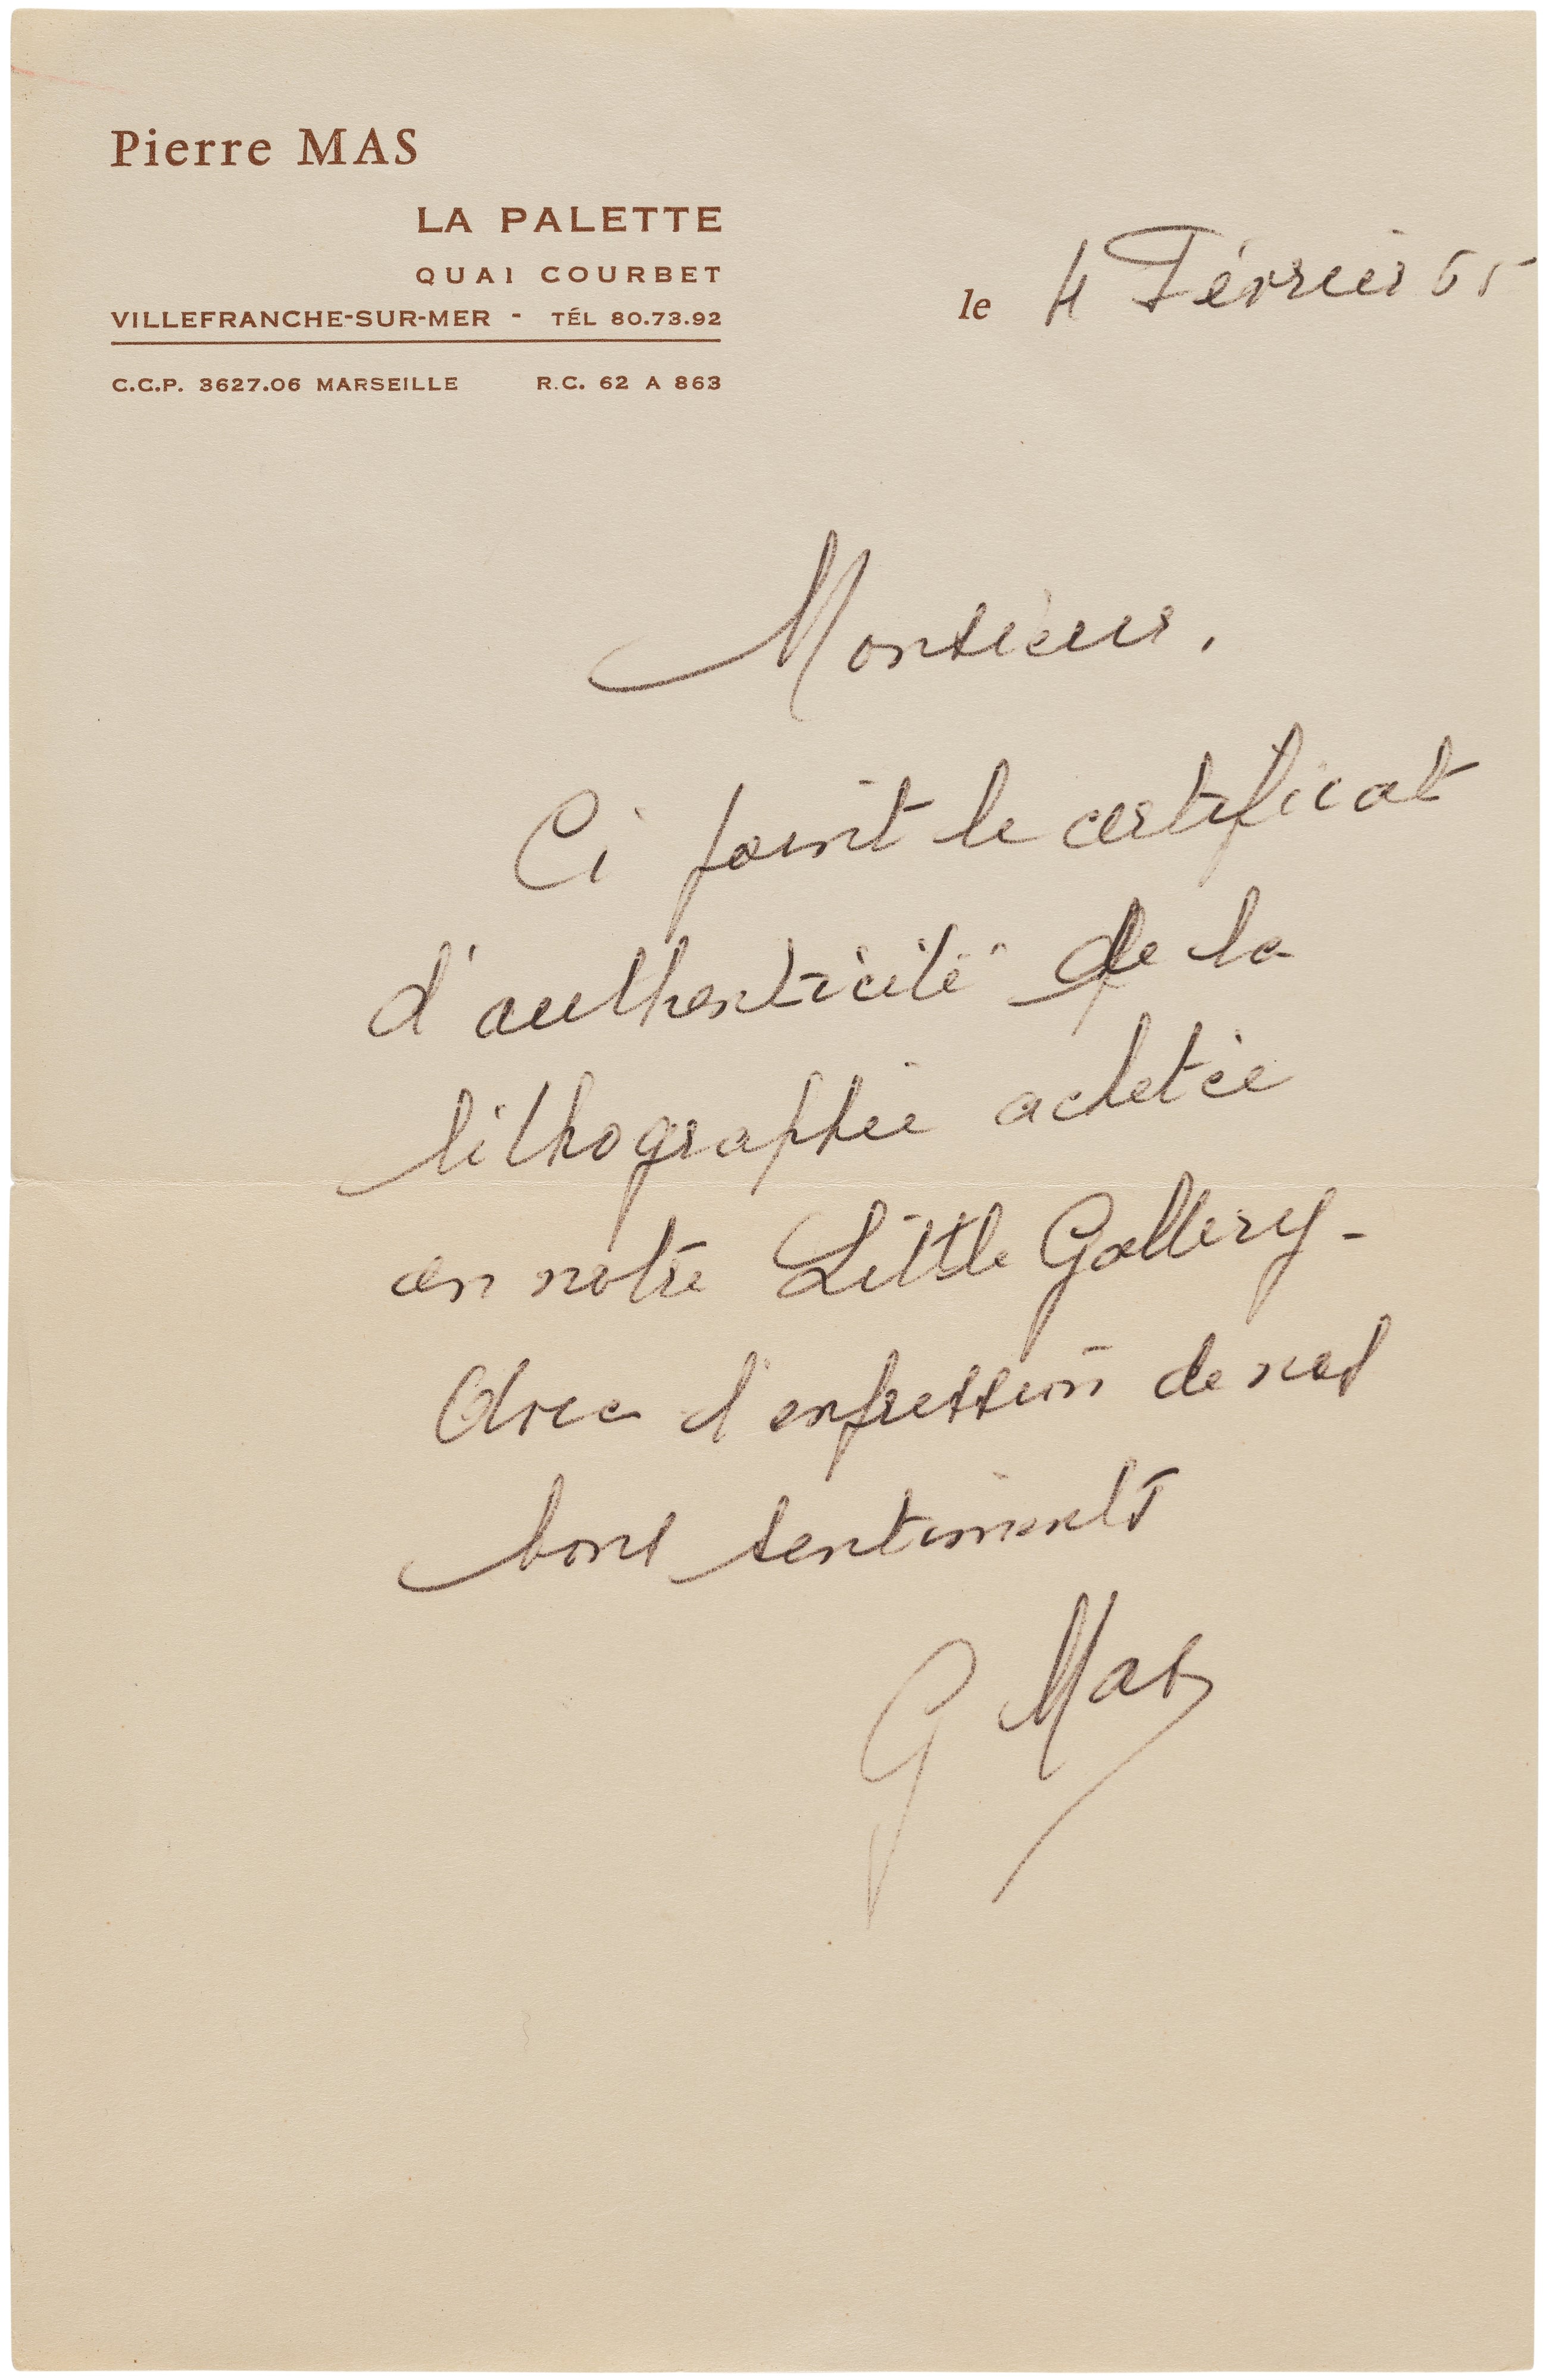 Pierre MAS
LA PALETTE
QUAI COURBET
VILLEFRANCHE-SUR-MER - TÉL 80.73.92
C.C.P. 3627.06 MARSEILLE R.C. 62 A 863
le 4 Février 65
Monsieur,
Ci joint le certificat
d'authenticité de la
lithographie achetée
en notre Little Gallery -
Avec l'expression de nos
bons sentiments
G Mas